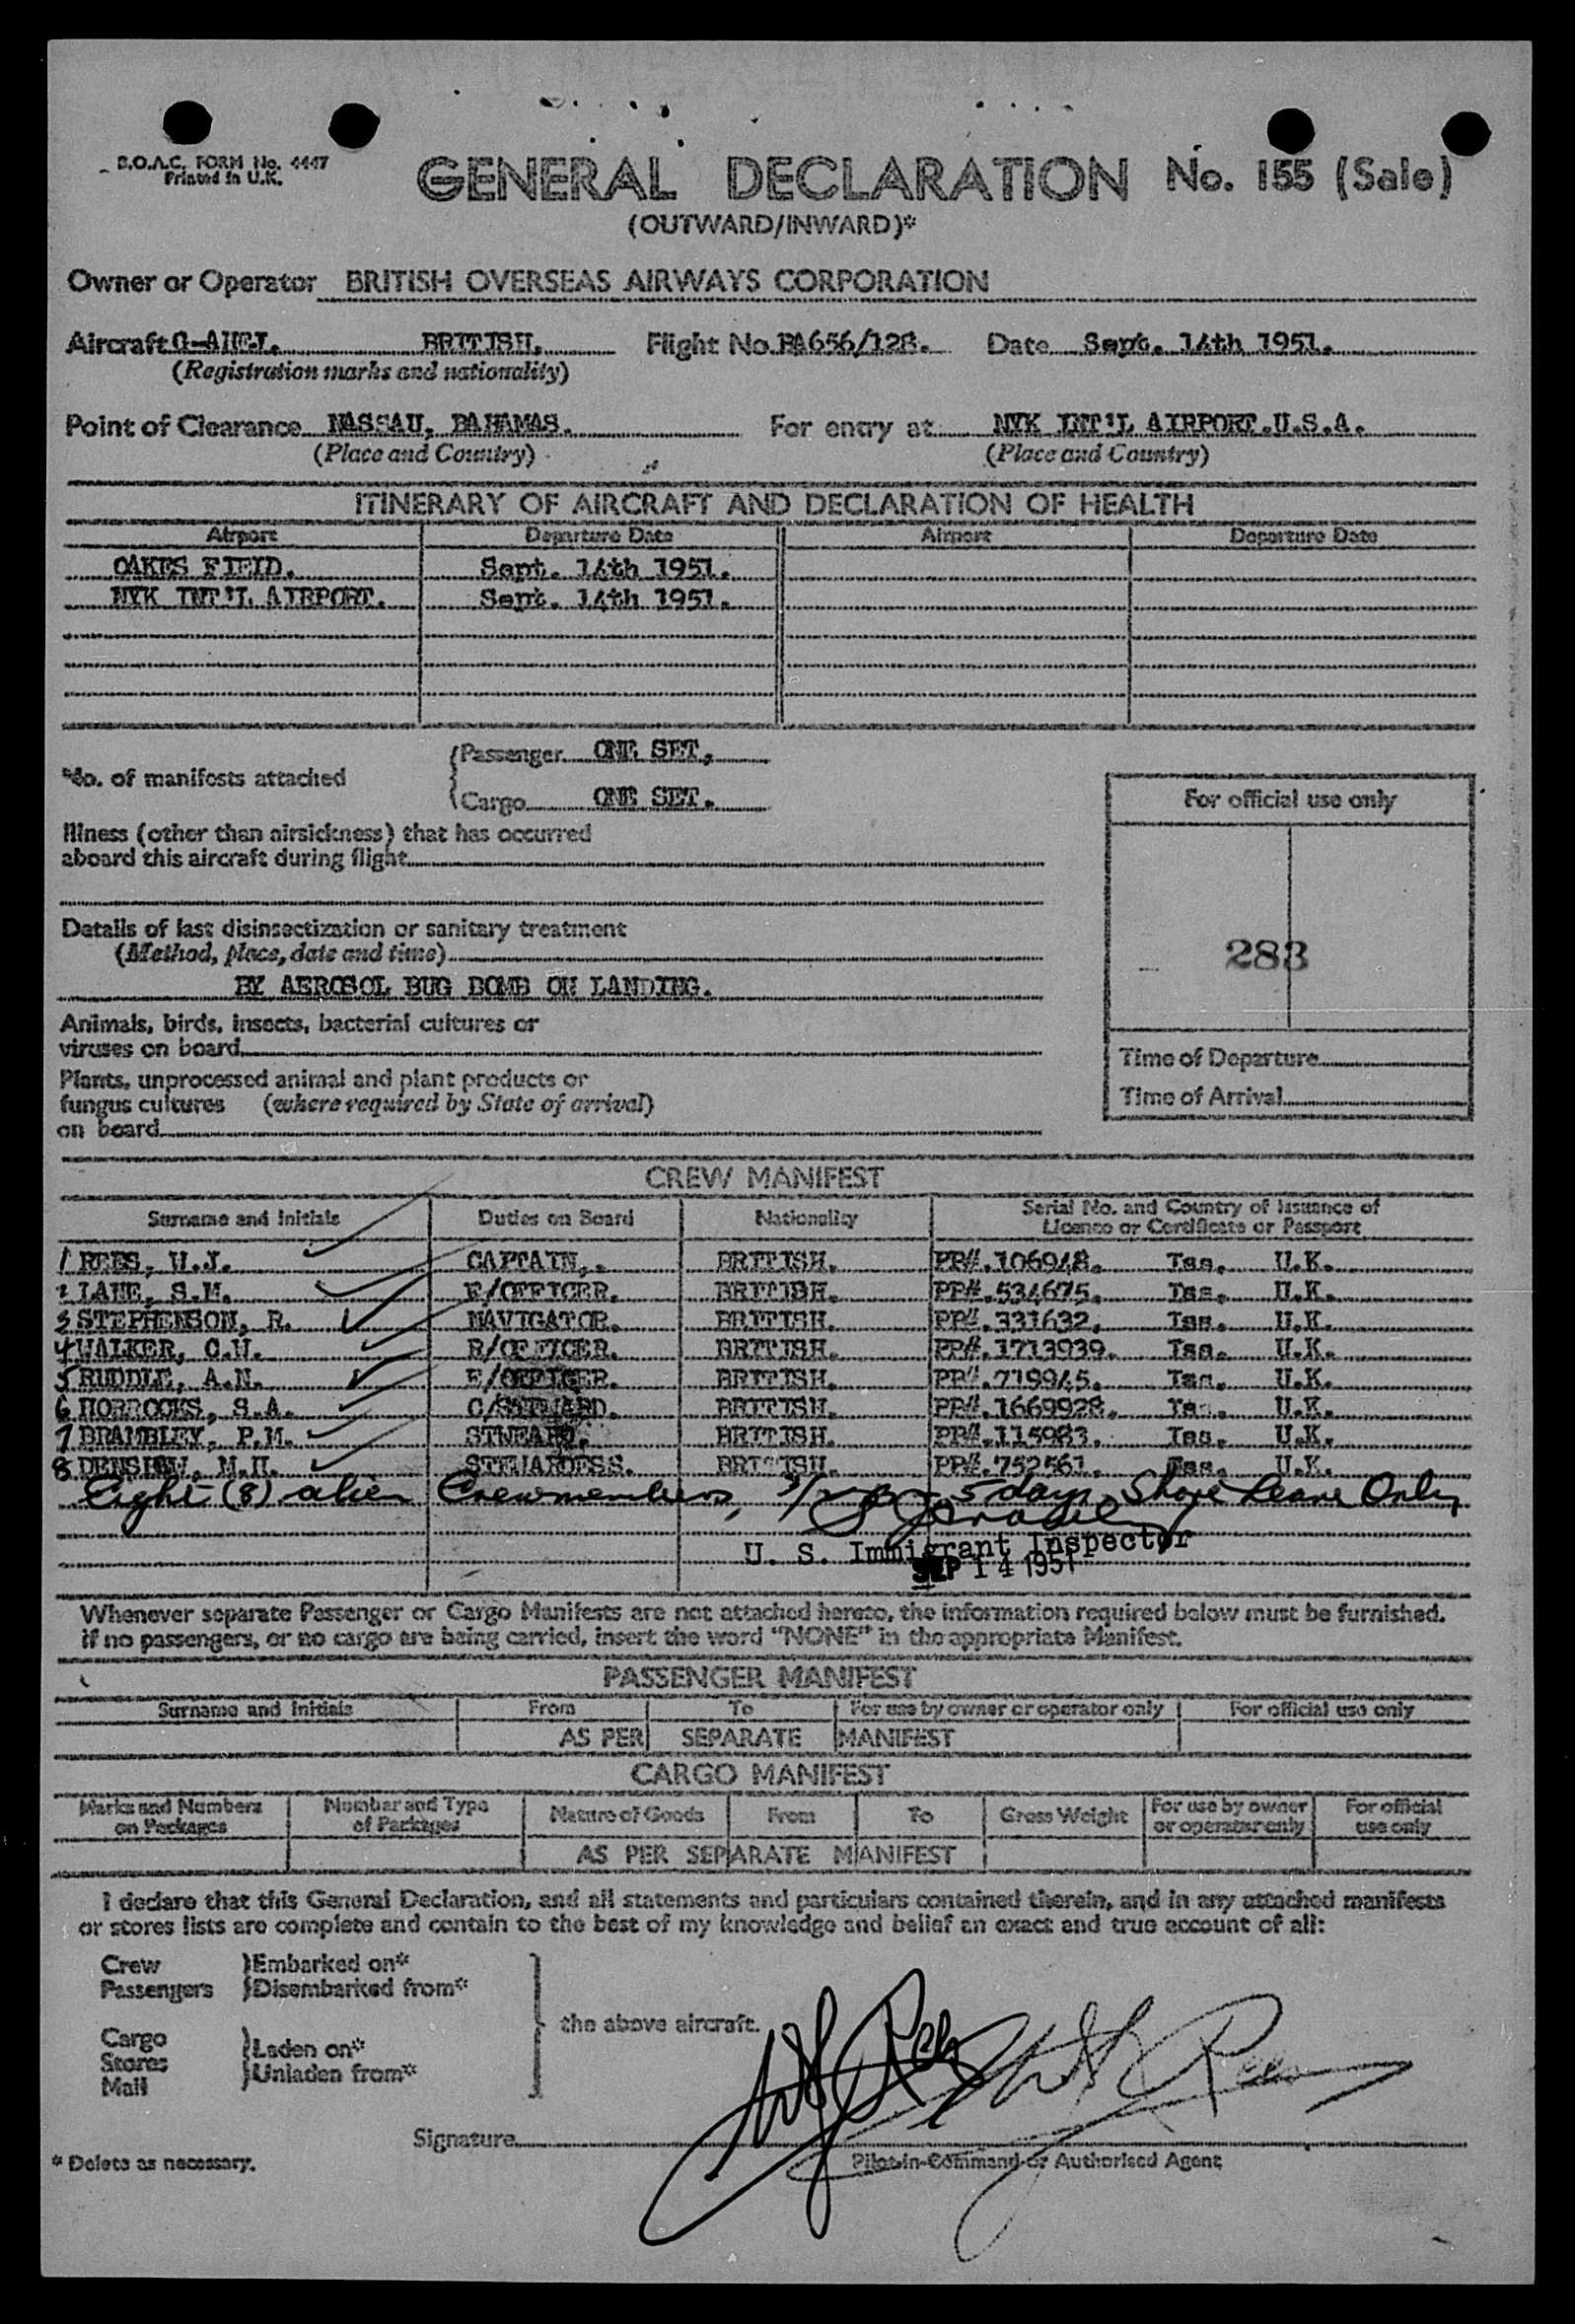 B.O.A.C. FORM No. 4447
Printed in U.K.
GENERAL DECLARATION No. 155 (Sale)
(OUTWARD/INWARD)*
Owner or Operator BRITISH OVERSEAS AIRWAYS CORPORATION
Aircraft BRITISH. Flight No. BA656/128. Date Sept. 14th 1951.
(Registration marks and nationality)
Point of Clearance NASSAU, BAHAMAS. For entry at NYK INT'L AIRPORT.U.S.A.
(Place and Country) (Place and Country)
ITINERARY OF AIRCRAFT AND DECLARATION OF HEALTH
Airport Departure Date Airport Departure Date
OAKES FIELD. Sept. 14th 1951.
NYK INT'L AIRPORT. Sept. 14th 1951.
*No. of manifests attached
Passenger ONE SET,
Cargo ONE SET.
For official use only
Illness (other than airsickness) that has occurred
aboard this aircraft during flight
Details of last disinsectization or sanitary treatment
(Method, place, date and time)
283
BY AEROSOL BUG BOMB ON LANDING.
Animals, birds, insects, bacterial cultures or
viruses on board
Time of Departure
Plants, unprocessed animal and plant products or
fungus cultures (where required by State of arrival)
on board
Time of Arrival
CREW MANIFEST
Surname and Initials Duties on Board Nationality Serial No. and Country of Issuance of
Licence or Certificate or Passport
1 REES, W.J. CAPTAIN. BRITISH. PP#.106948. Iss. U.K.
2 LANE, S.M. F/OFFICER. BRITISH. PP#.534675. Iss. U.K.
3 STEPHENSON, R. NAVIGATOR. BRITISH. PP#.331632. Iss. U.K.
4 WALKER, C.W. R/OFFICER. BRITISH. PP#.1713939. Iss. U.K.
5 RUDDLE, A.N. E/OFFICER. BRITISH. PP#.719945. Iss. U.K.
6 HORROCKS, S.A. C/STEWARD. BRITISH. PP#.1669928. Iss. U.K.
7 BRAMBLEY, P.M. STWEARD. BRITISH. PP#.115983. Iss. U.K.
8 M.H. STEWARDESS. BRITISH. PP#.752561. Iss. U.K.
Eight (8) alien Crewmembers, 5 days Shore Leave Only
U. S. Immigrant Inspector
SEP 14 1951
Whenever separate Passenger or Cargo Manifests are not attached hereto, the information required below must be furnished.
If no passengers, or no cargo are being carried, insert the word "NONE" in the appropriate Manifest.
PASSENGER MANIFEST
Surname and Initials From To For use by owner or operator only For official use only
AS PER SEPARATE MANIFEST
CARGO MANIFEST
Marks and Numbers on Packages Number and Type of Packages Nature of Goods From To Gross Weight For use by owner or operator only For official use only
AS PER SEPARATE MANIFEST
I declare that this General Declaration, and all statements and particulars contained therein, and in any attached manifests
or stores lists are complete and contain to the best of my knowledge and belief an exact and true account of all:
Crew Embarked on*
Passengers Disembarked from*
the above aircraft.
Cargo
Stores Laden on*
Mail Unladen from*
Signature
* Delete as necessary. Pilot-in-Command or Authorised Agent